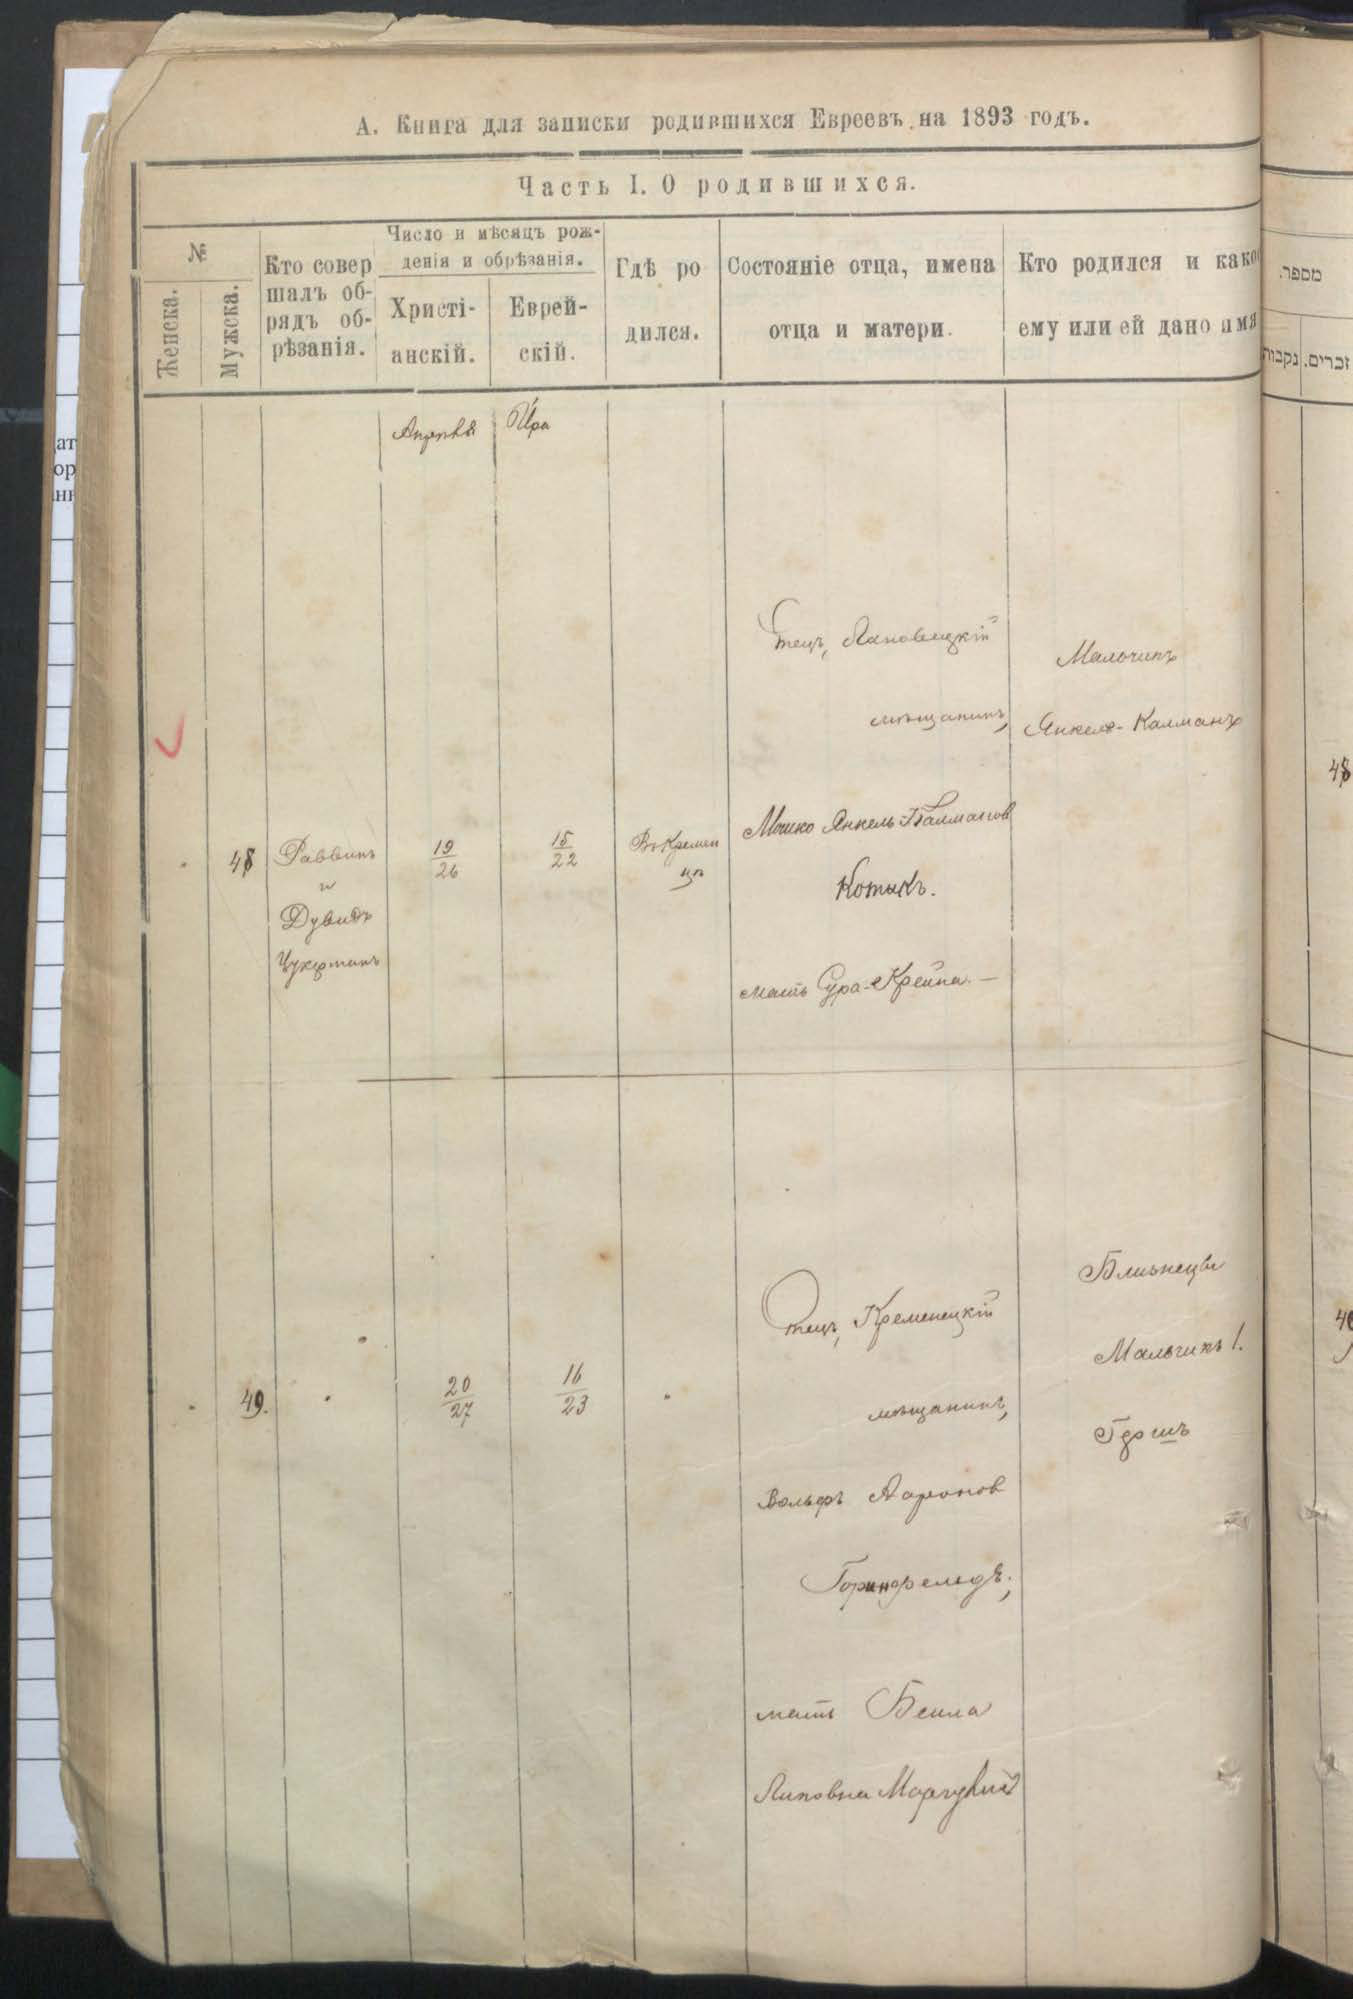 А. Книга для записки родившихся Евреевъ на 1893 годъ.
Часть I. О родившихся.
№
Женска.
Мужска.
Кто совер
шалъ об-
рядъ об-
рѣзанія.
Число и мѣсяцъ рож-
денія и обрѣзанія.
Христі-
анскій.
Еврей-
скій.
Гдѣ ро
дился.
Состояніе отца, имена
отца и матери.
Кто родился и како
ему или ей дано имя
מספר.
נקבות
זכרים.
Апрѣля
Іюра
48
Раввинъ
и
Дувидъ
Цукерманъ
19
26
15
22
Въ Кремен
цѣ
Отецъ, Яновецкій
мѣщанинъ,
Мошко Янкель Калманов
Котикъ.
мать Сура-Крейна. —
Мальчикъ
Янкель-Калманъ
48
49.
20
27
16
23
Отецъ, Кременецкій
мѣщанинъ,
Вольфъ Аароновъ
Горинфельдъ;
мать Бейла
Липовна
Близнецы
Мальчикъ 1.
Гершъ